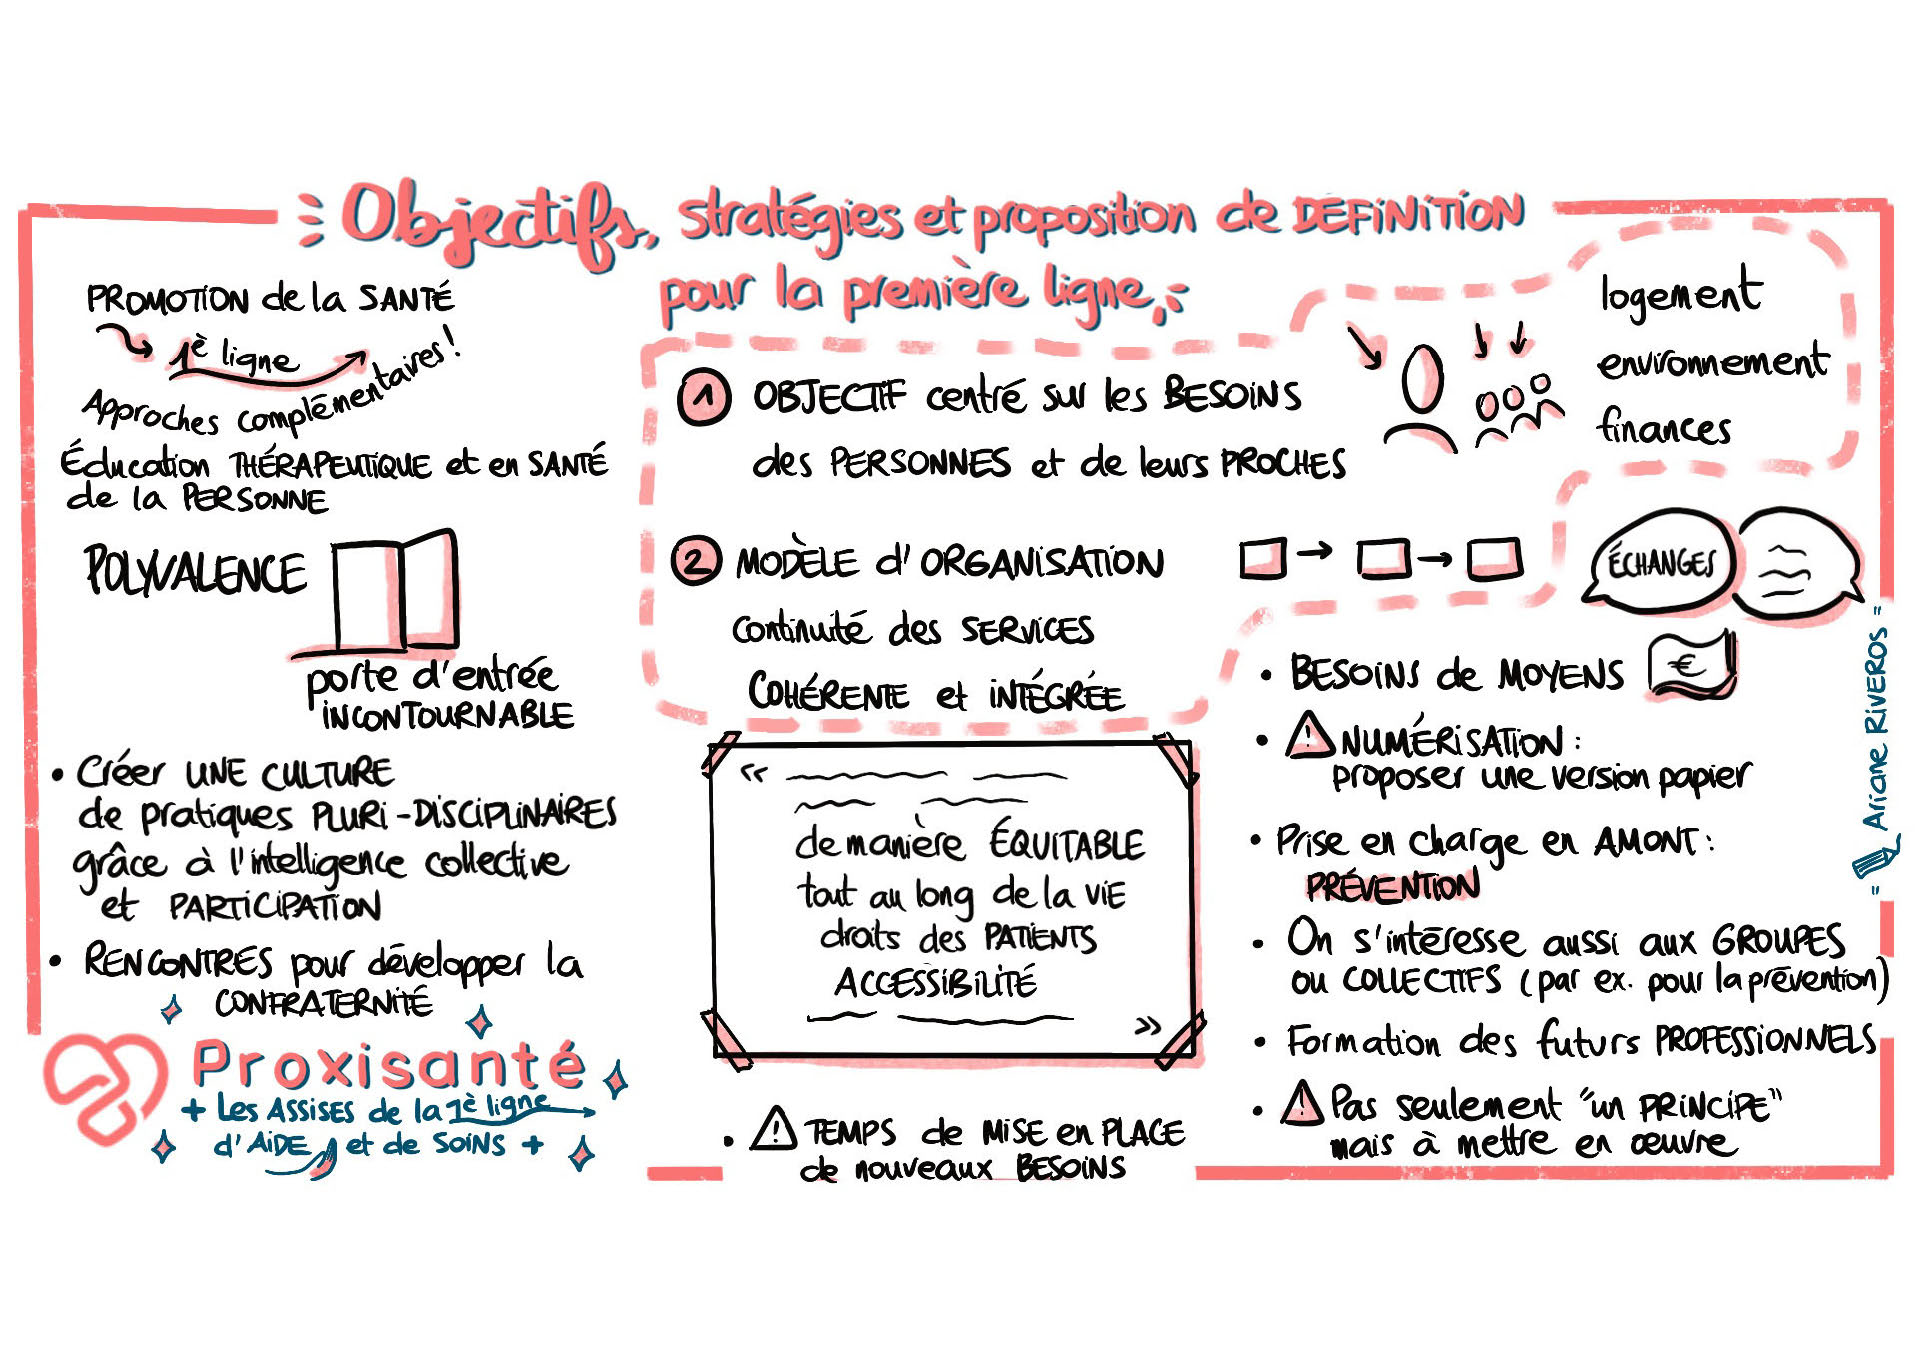 Objectifs, stratégies et proposition de DEFINITION
pour la première ligne
PROMOTION de la SANTÉ
1è ligne
Approches complémentaires!
Éducation THÉRAPEUTIQUE et en SANTÉ
de la PERSONNE
POLYVALENCE
porte d'entrée
INCONTOURNABLE
• Créer UNE CULTURE
de pratiques PLURI-DISCIPLINAIRES
grâce à l'intelligence collective
et PARTICIPATION
• RENCONTRES pour développer la
CONFRATERNITÉ
Proxisanté
+ Les ASSISES de la 1è ligne
d'AIDE et de SOINS +
1 OBJECTIF centré sur les BESOINS
des PERSONNES et de leurs PROCHES
2 MODÈLE d'ORGANISATION
Continuité des SERVICES
COHÉRENTE et INTÉGRÉE
logement
environnement
finances
«
de manière ÉQUITABLE
tout au long de la VIE
droits des PATIENTS
ACCESSIBILITÉ
»
• ! TEMPS de MISE en PLACE
de nouveaux BESOINS
ÉCHANGES
• BESOINS de MOYENS €
• ! NUMÉRISATION :
proposer une version papier
• Prise en charge en AMONT :
PRÉVENTION
• On s'intéresse aussi aux GROUPES
ou COLLECTIFS (par ex. pour la prévention)
• Formation des futurs PROFESSIONNELS
• ! Pas seulement "un PRINCIPE"
mais à mettre en œuvre
= Ariane RIVEROS =